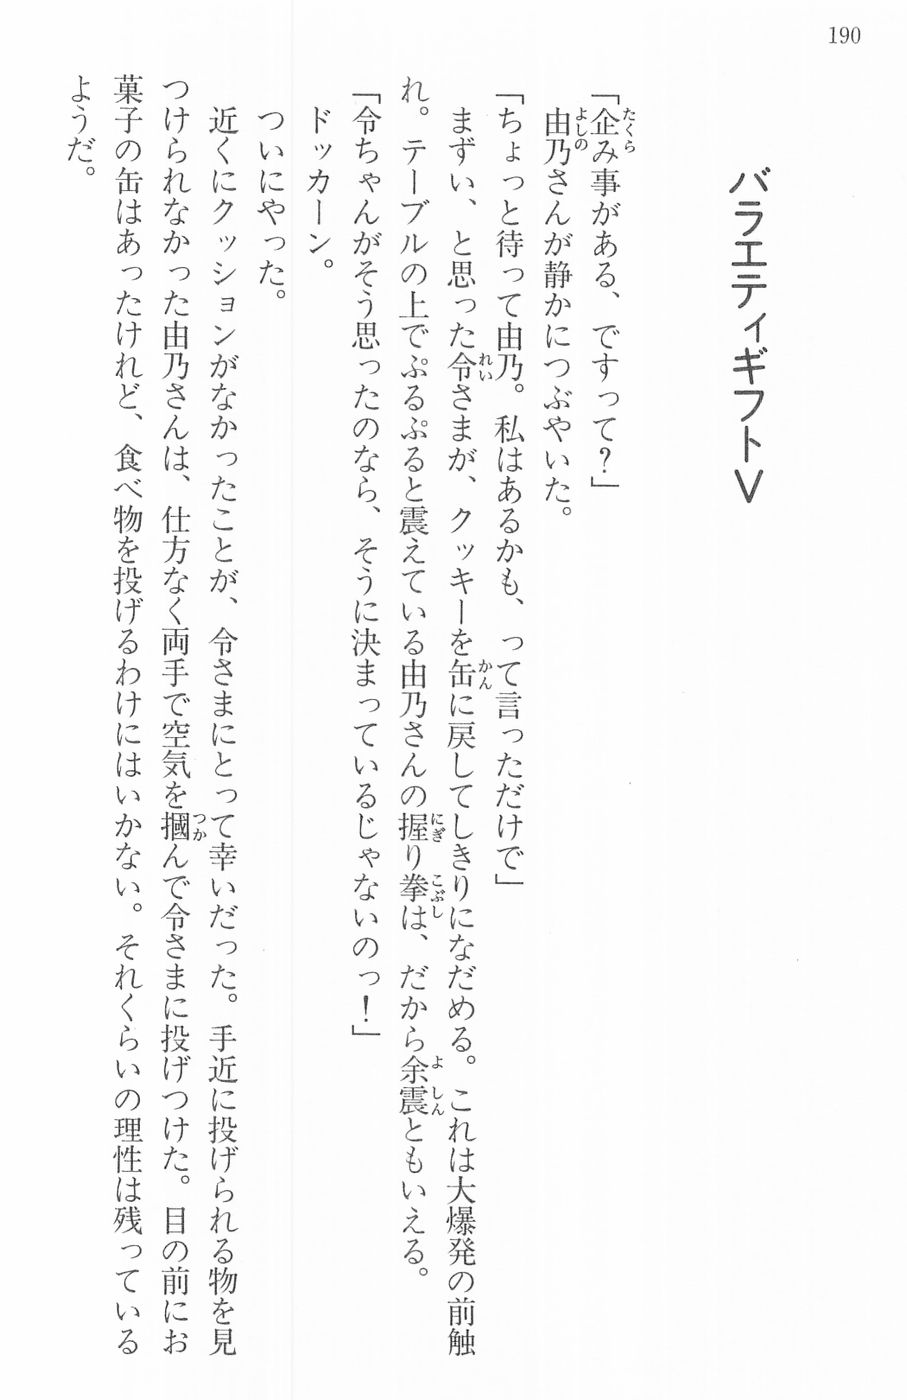 190
バラエティギフトⅤ
「企み事がある、ですって？」
由乃さんが静かにつぶやいた。
「ちょっと待って由乃。私はあるかも、って言っただけで」
まずい、と思った令さまが、クッキーを缶に戻してしきりになだめる。これは大爆発の前触
れ。テーブルの上でぷるぷると震えている由乃さんの握り拳は、だから余震ともいえる。
「令ちゃんがそう思ったのなら、そうに決まっているじゃないのっ！」
ドッカーン。
ついにやった。
近くにクッションがなかったことが、令さまにとって幸いだった。手近に投げられる物を見
つけられなかった由乃さんは、仕方なく両手で空気を摑んで令さまに投げつけた。目の前にお
菓子の缶はあったけれど、食べ物を投げるわけにはいかない。それくらいの理性は残っている
ようだ。